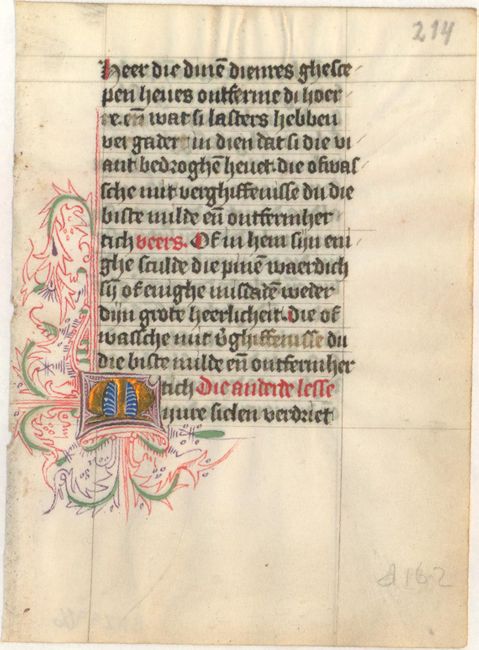 214
Heer die dinē dienres ghesce
pen heues ontferme di hoer
re. eñ wat si lasters hebben
vergadert in dien dat si die vi
ant bedroghē heuet. die ofwas
sche mit verghiffenisse du die
biste milde eñ ontfermher
tich veers. Of in hem sijn eni
ghe sculde die pinē waerdich
sij of enighe misdatē weder
dijn grote heerlicheit. die of
wassche mit v̄ghiffenisse du
die biste milde eñ ontfermher
tich Die anderde lesse
Mijnre sielen verdriet
d 16.2